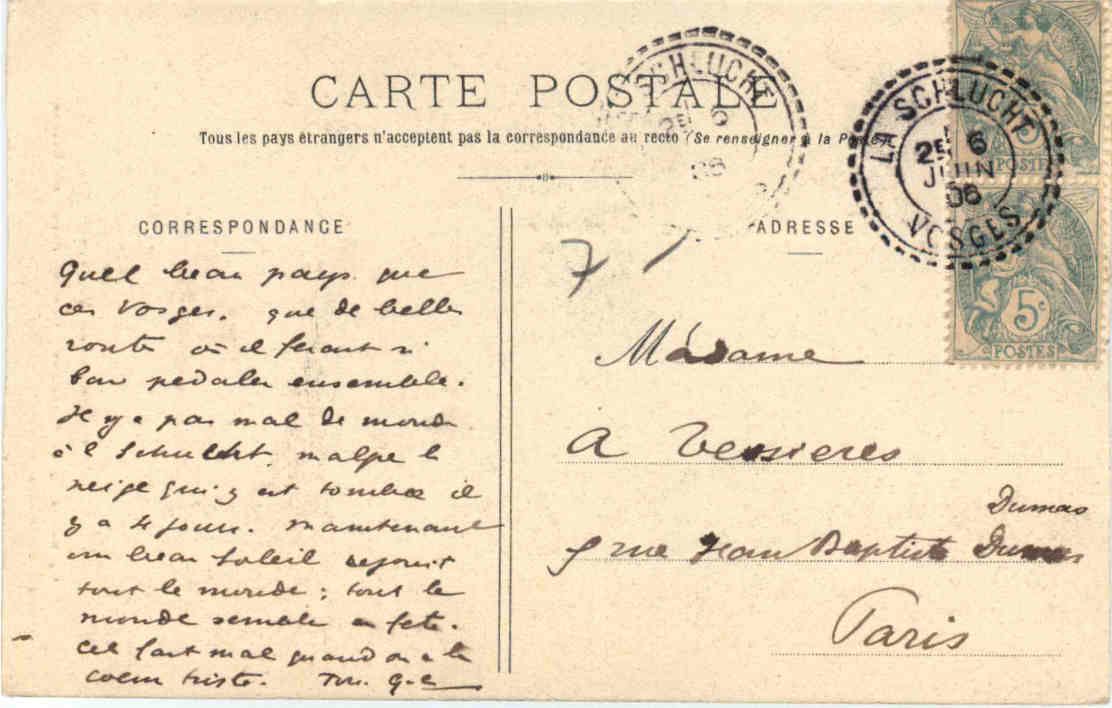 CARTE POSTALE
Tous les pays étrangers n'acceptent pas la correspondance au recto (Se renseigner à la Poste)
LA SCHLUCHT
2E 6
JUIN
06
VOSGES
SCHLUCHT
5c
POSTES
5c
POSTES
CORRESPONDANCE
ADRESSE
7
Quel beau pays que
ces Vosges. que de belles
routes où il ferait si
bon pedaler ensemble.
Il y a pas mal de monde
à la Schlucht, malgré la
neige qui y est tombée il
y a 4 jours. maintenant
un beau soleil rejouit
tout le monde ; tout le
monde semble en fete.
Cel fait mal quand on a le
coeur triste. Ton
Madame
A Vessieres
Dumas
rue Jean Baptiste Dumas
Paris